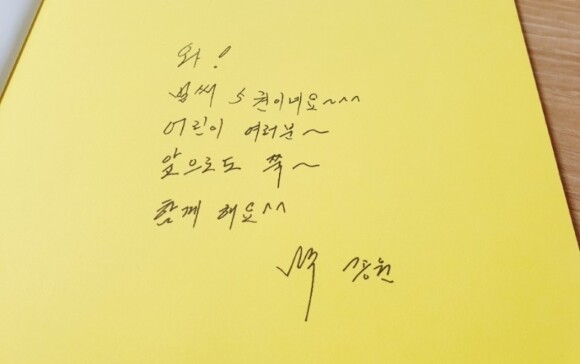 와!
벌써 5권이네요~^^
어린이 여러분~
앞으로도 쭉~
함께 해요^^
박 종원